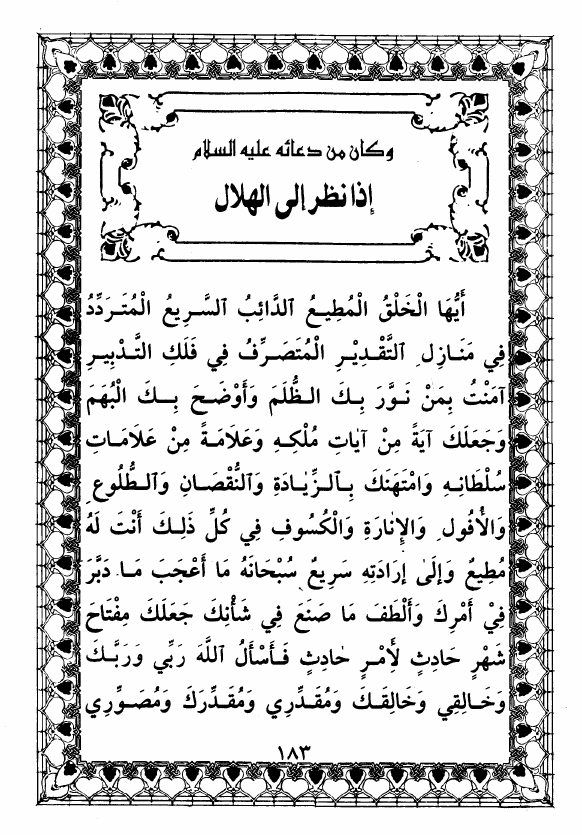 وكان من دعائه عليه السلام
إذا نظر إلى الهلال
أَيُّهَا الْخَلْقُ الْمُطِيعُ الدَّائِبُ السَّرِيعُ الْمُتَرَدِّدُ
فِي مَنَازِلِ التَّقْدِيْرِ الْمُتَصَرِّفُ فِي فَلَكِ التَّدْبِيرِ
آمَنْتُ بِمَنْ نَوَّرَ بِكَ الظُّلَمَ وَأَوْضَحَ بِكَ الْبُهَمَ
وَجَعَلَكَ آيَةً مِنْ آيَاتِ مُلْكِهِ وَعَلَامَةً مِنْ عَلَامَاتِ
سُلْطَانِهِ وَامْتَهَنَكَ بِالزِّيَادَةِ وَالنُّقْصَانِ وَالطُّلُوعِ
وَالْأُفُولِ وَالْإِنَارَةِ وَالْكُسُوفِ فِي كُلِّ ذَلِكَ أَنْتَ لَهُ
مُطِيعٌ وَإِلَى إِرَادَتِهِ سَرِيعٌ سُبْحَانَهُ مَا أَعْجَبَ مَا دَبَّرَ
فِيْ أَمْرِكَ وَأَلْطَفَ مَا صَنَعَ فِي شَأْنِكَ جَعَلَكَ مِفْتَاحَ
شَهْرٍ حَادِثٍ لِأَمْرٍ حَادِثٍ فَأَسْأَلُ اللَّهَ رَبِّي وَرَبَّكَ
وَخَالِقِي وَخَالِقَكَ وَمُقَدِّرِي وَمُقَدِّرَكَ وَمُصَوِّرِي
١٨٣